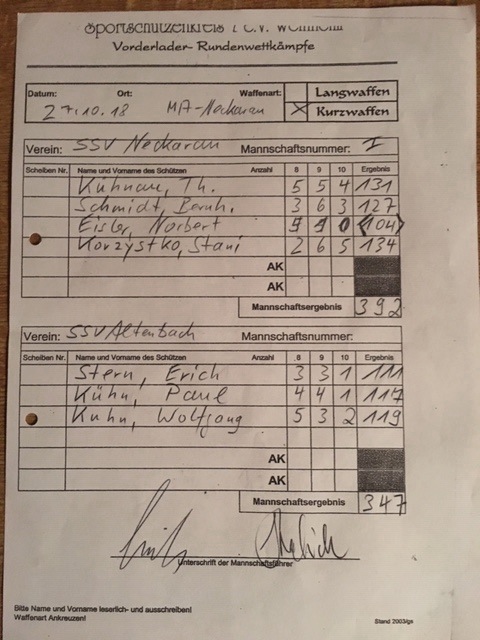 Sportschützenkreis 7 e.V. Weinheim
Vorderlader- Rundenwettkämpfe
Datum: Ort: Waffenart: Langwaffen
27.10.18 MA-Neckarau X Kurzwaffen
Verein: SSV Neckarau Mannschaftsnummer: I
Scheiben Nr. Name und Vorname des Schützen Anzahl 8 9 10 Ergebnis
Kuhnau, Th. 5 5 4 131
Schmidt, Bernh. 3 6 3 127
Eisler, Norbert 1 0 (104)
Korzystko, Stani 2 6 5 134
AK
AK
Mannschaftsergebnis 392
Verein: SSV Altenbach Mannschaftsnummer:
Scheiben Nr. Name und Vorname des Schützen Anzahl 8 9 10 Ergebnis
Stern, Erich 3 3 1 111
Kühn, Paul 4 4 1 117
Kuhn, Wolfgang 5 3 2 119
AK
AK
Mannschaftsergebnis 347
Unterschrift der Mannschaftsführer
Bitte Name und Vorname leserlich- und ausschreiben!
Waffenart Ankreuzen!
Stand 2003/gs